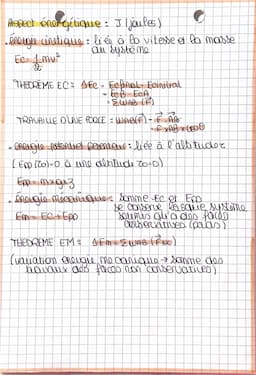 Aspect énergétique : J (joules)
. Énergie cinétique : liée à la vitesse et la masse
du système
Ec = 1/2 mv²
THEOREME EC : ΔEc = Ecfinal - Ecinitial
= EcB - EcA
= ΣWAB (F)
TRAVAILLE D'UNE FORCE : WAB(F) = F . AB
= F x AB x cos θ
. énergie potentiel pesanteur : liée à l'altitude z
(Epp (z0) = 0 à une altitude z0=0)
Epp = m x g x z
. Énergie mécanique : Somme Ec et Epp
se conserve lorsque système
soumis qu'à des forces
conservatives (poids)
Em = Ec + Epp
THEOREME ETM : ΔEm = ΣWAB (Fnc)
(variation énergie mécanique → somme des
travaux des forces non conservatives)